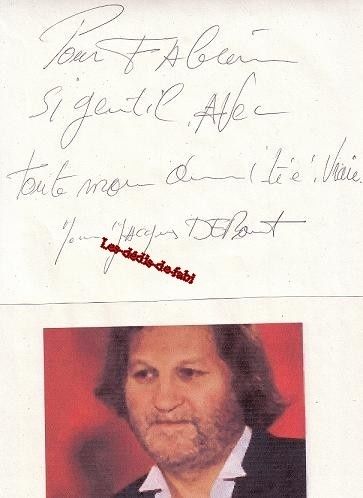 Pour FAbien
Si gentil. Avec
toute mon amitié. Vraie.
Jacques DEBout
Les-dédis-de-fabi